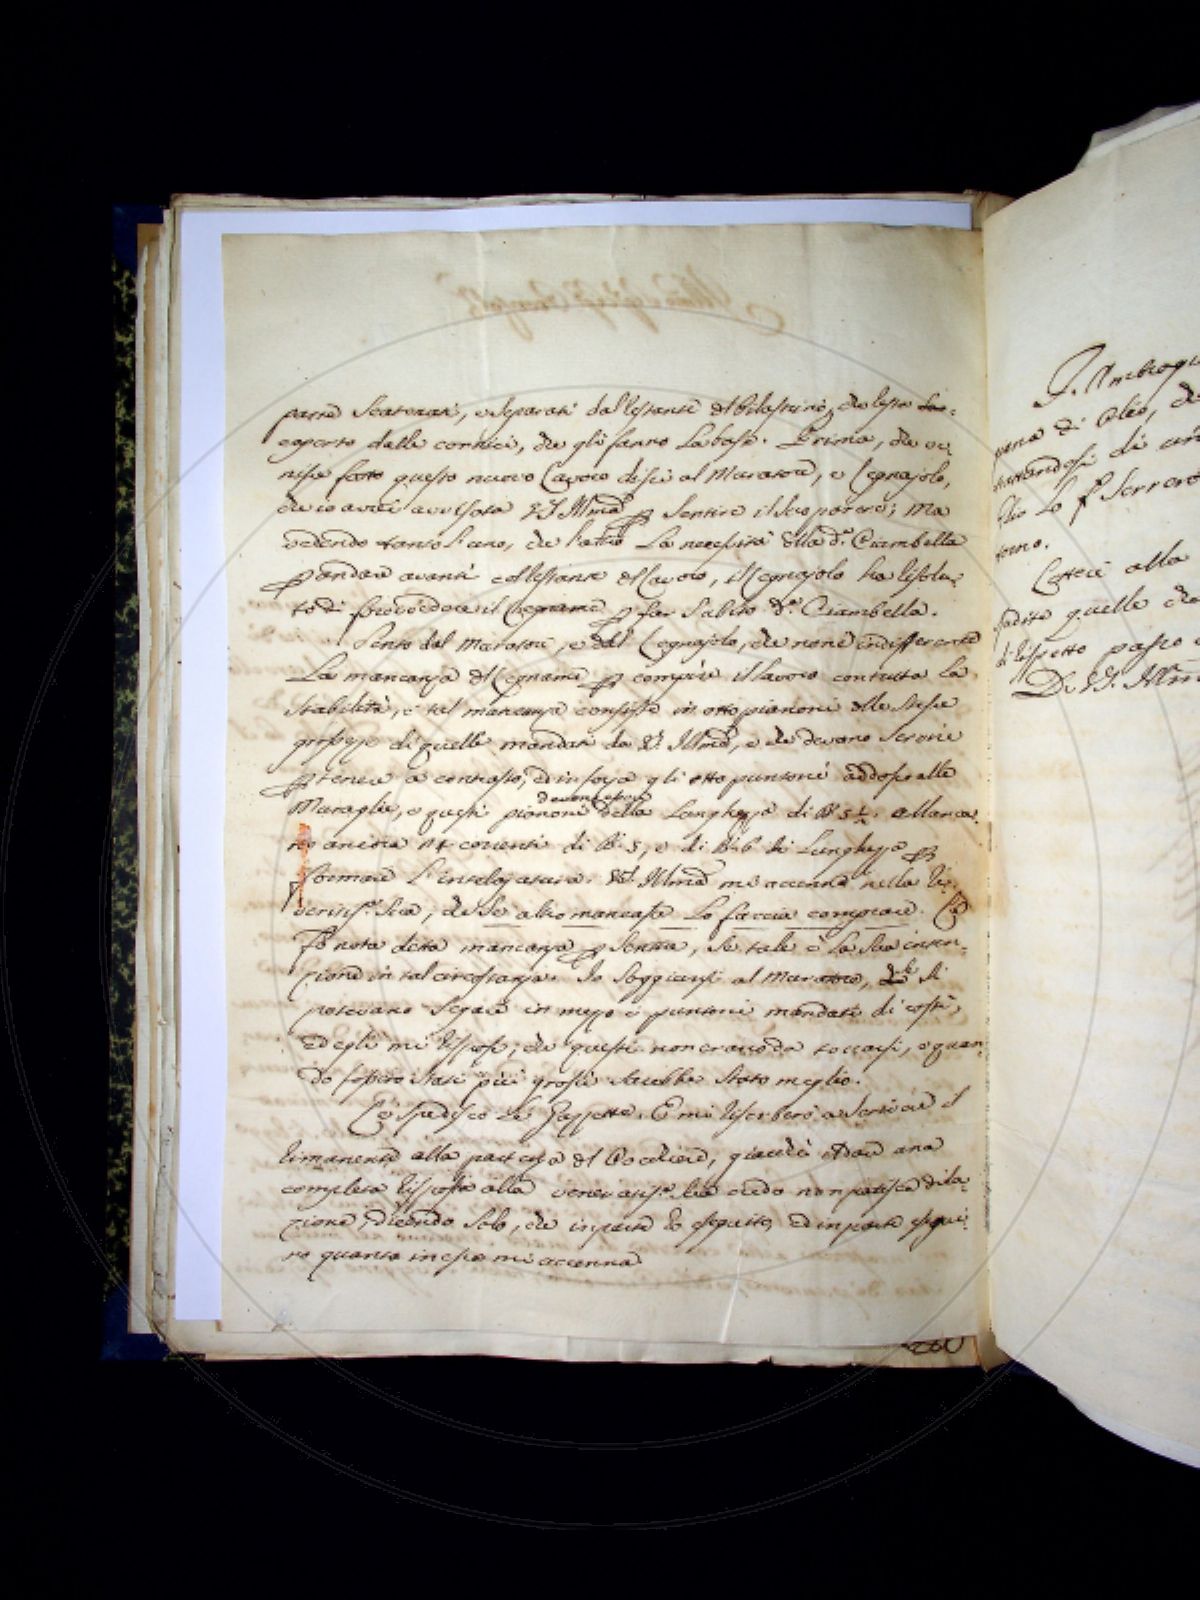 parte scatenati, e separati dal restante del pilastrino, che resta
coperto dalle cornici, che gli fanno la base. Prima, che ve-
nisse fatto questo nuovo Lavoro dissi al Muratore, e Legnajolo,
che io avrei avvisata V.S. Illma per sentire il suo parere; ma
vedendo tanto l'uno, che l'altro la necessità della da. Ciambella
per andare avanti col restante del Lavoro, il Legnajolo ha risolu-
to di provvedere il Legname per far subito da. Ciambella.
Sento dal Muratore, e dal Legnajolo, che non è indifferente
La mancanza del Legname per compire il lavoro con tutta la
stabilità, e tal mancanza consiste in otto pianoni delle stesse
grossezze di quelle mandati da V.S. Illma, e che devono servire
per tenere a contrasto, ed in forza gli otto puntoni addosso alle
Muraglie, e questi pianoni devono essere della Lunghezza di B. 5½. Manca-
no ancora n. 4 correnti di B. 5, e di B. 6 di Lunghezza per
formare l'intelajatura. V.S. Illma mi accenna nella Ri-
veritisa. Sua, che se altro mancasse Lo faccia comprare. Le
Fo nota detta mancanza per sentire, se tale è la Sua inten-
zione in tal circostanza. Io soggiunsi al Muratore, che si
potevano segare in mezzo i puntoni mandati di costì,
ed egli mi rispose, che questi non erano da toccarsi, e quan-
do fossero stati più grossi sarebbe stato meglio.
Le spedisco le Gazzette. E mi riserberò a scrivere il
rimanente alla partenza del Cocchiere, giacchè il dare una
completa risposta alla veneratisa. Sua credo non patisca dila-
zione, dicendo solo, che in parte ho eseguito, ed in parte esegui-
rò quanto in essa mi accenna
G. Ambrogi
di Oleo, che
trattandosi di
Lo Sr. Ferrero
torno.
alla
quelle che
di rispetto passo
Di V.S. Illma
260